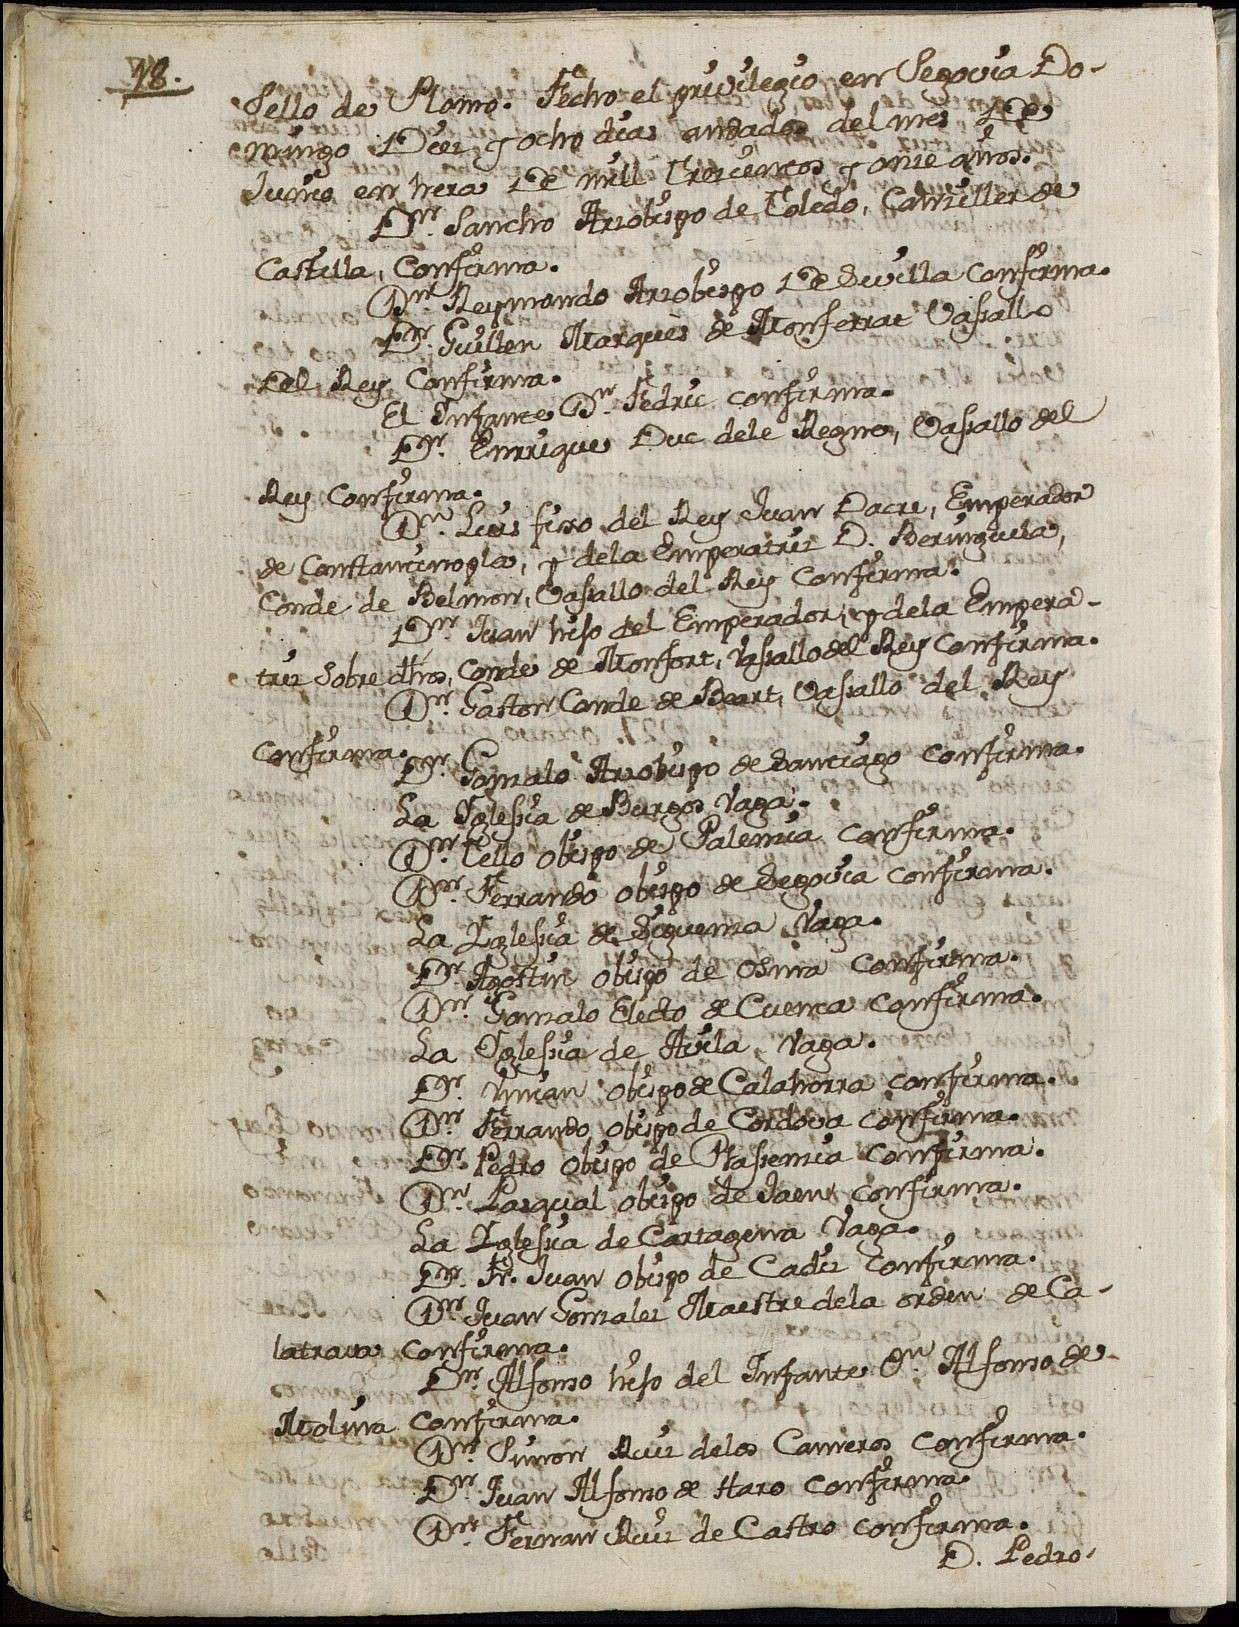 18.
Sello de Plomo. Fecho el privilegio en Segovia Do-
mingo Diez y ocho dias andados del mes De
Junio en hera De mill Trecientos y onze años.
Dn. Sancho Arzobispo de Toledo, Canziller de
Castilla, Confirma.
Dn. Reymondo Arzobispo De Sevilla confirma.
Dn. Guillen Marques de Monferrat Vasallo
Del Rey Confirma.
El Infante Dn. Fedric confirma.
Dn. Enrrique Duc dele Regne, Vasallo del
Rey Confirma.
Dn. Luis fixo del Rey Juan Dacre, Emperador
de Constantinopla, y dela Emperatriz D. Beringuela,
Conde de Belmon, Vasallo del Rey Confirma.
Dn. Juan hijo del Emperador, y dela Empera-
triz Sobre dhos, Conde de Monfort, Vasallo del Rey Confirma.
Dn. Gaston Conde de Beart, Vasallo del Rey
Confirma.
Dn. Gonzalo Arzobispo de Santiago confirma.
La Iglesia de Burgos Vaga.
Dn. Tello obispo de Palenzia confirma.
Dn. Ferrando obispo de Segovia confirma.
La Iglesia de Siguenza Vaga.
Dn. Agostin obispo de Osma Confirma.
Dn. Gonzalo Electo de Cuenca confirma.
La Iglesia de Avila, Vaga.
Dn. Vivian obispo de Calahorra confirma.
Dn. Ferrando obispo de Cordova confirma.
Dn. Pedro obispo de Plasenzia confirma.
Dn. Pasqual obispo de Jaen confirma.
La Iglesia de Cartagena Vaga.
Dn. Fr. Juan obispo de Cadiz Confirma.
Dn. Juan Gonzalez Maestre dela orden de Ca-
latrava confirma.
Dn. Alfonso hijo del Infante Dn. Alfonso de
Molina confirma.
Dn. Simon Ruiz delos Cameros confirma.
Dn. Juan Alfonso de Haro confirma.
Dn. Fernan Ruiz de Castro confirma.
D. Pedro